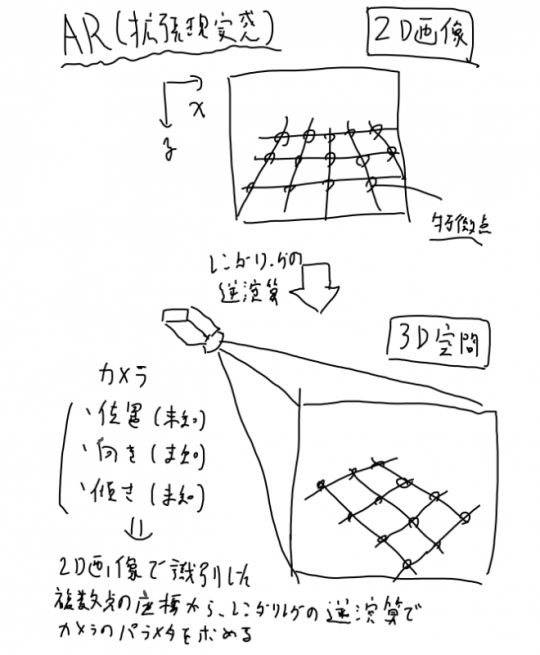 AR(拡張現実感)
2D画像
x
y
特徴点
レンダリングの
逆演算
3D空間
カメラ
・位置(未知)
・向き(未知)
・傾き(未知)
2D画像で識別した
複数点の座標から、レンダリングの逆演算で
カメラのパラメタを求める